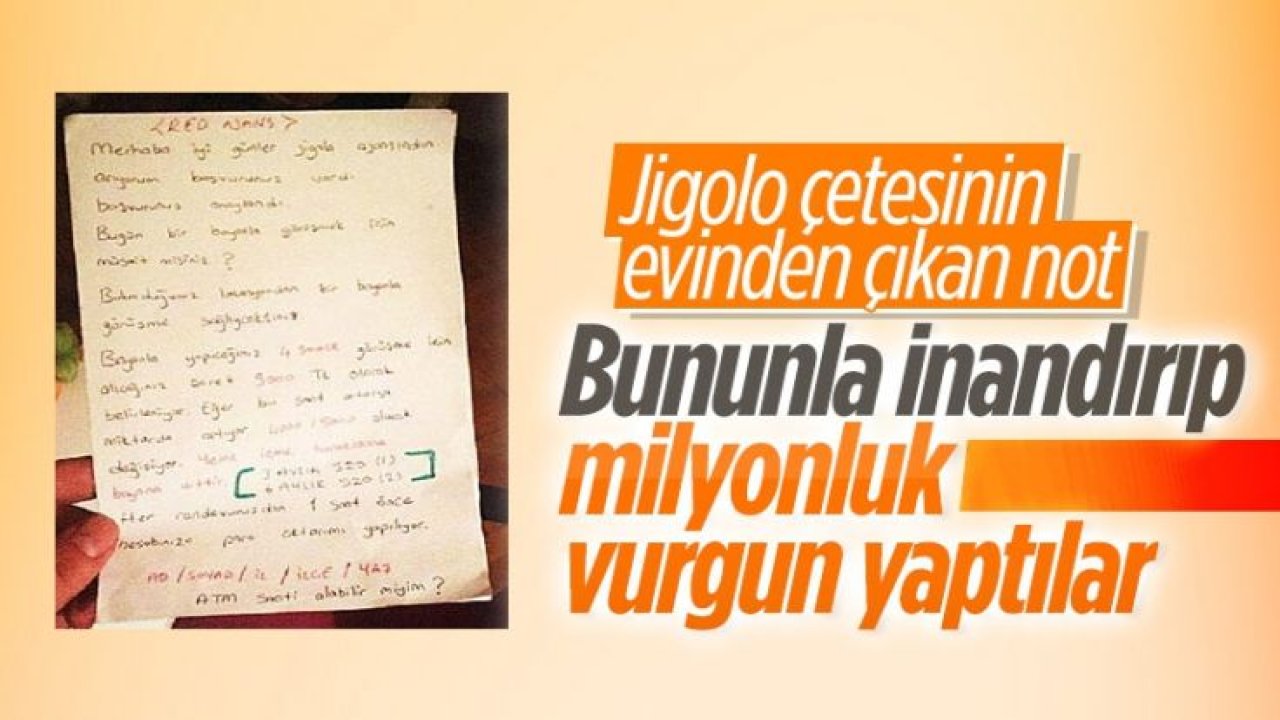 <RED AJANS>
Merhaba iyi günler jigolo ajansından
arıyorum başvurunuz vardı
başvurunuz onaylandı.
Bugün bir bayanla görüşmek için
müsait misiniz ?
Bulunduğunuz lokasyondan bir bayanla
görüşme sağlayacaksınız
Bayanla yapacağınız görüşme için
alacağınız ücret TL olarak
belirleniyor. Eğer bir saat artarsa
miktarda artıyor olarak
değişiyor. Yeme içme
bayana aittir
3 AYLIK 320 (1)
6 AYLIK 520 (2)
Her randevunuzdan 1 saat önce
hesabınıza para aktarımı yapılıyor.
AD / SOYAD / İL / İLÇE / YAŞ
ATM saati alabilir miyim ?
Jigolo çetesinin
evinden çıkan not
Bununla inandırıp
milyonluk
vurgun yaptılar